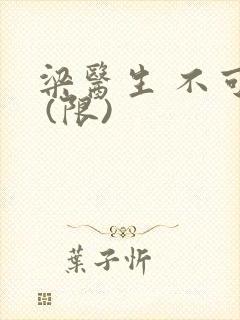 梁醫生 不可
(限)
葉子忻